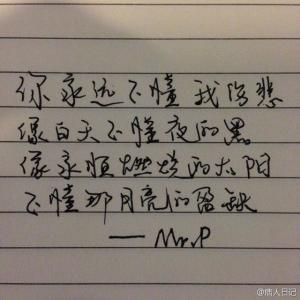 你永远不懂我伤悲
像白天不懂夜的黑
像永恒燃烧的太阳
不懂那月亮的盈缺
——Mr.P
@痞人日记